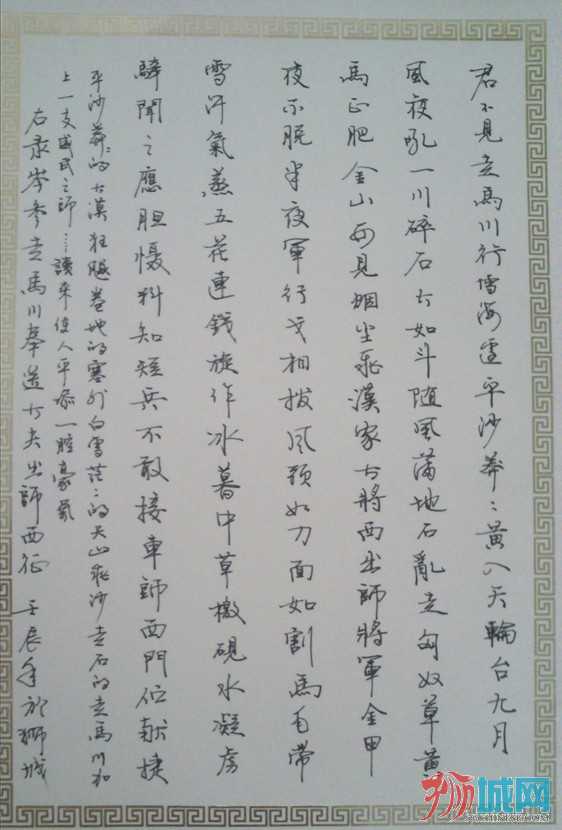 君不見走馬川行雪海邊平沙莽〻黄入天輪台九月
風夜吼一川碎石大如斗随風满地石亂走匈奴草黄
馬正肥金山西見烟尘飛漢家大將西出師將軍金甲
夜不脱半夜軍行戈相拨風頭如刀面如割馬毛带
雪汗氣蒸五花連錢旋作冰幕中草檄硯水凝虏
騎聞之應胆慑料知短兵不敢接車師西門伫献捷
平沙莽〻的大漠狂飚卷地的塞外白雪茫〻的天山飛沙走石的走馬川加
上一支威武之師……讀来使人平添一腔豪氣
右录岑參走馬川奉送大夫出師西征 壬辰年於獅城
狮城网